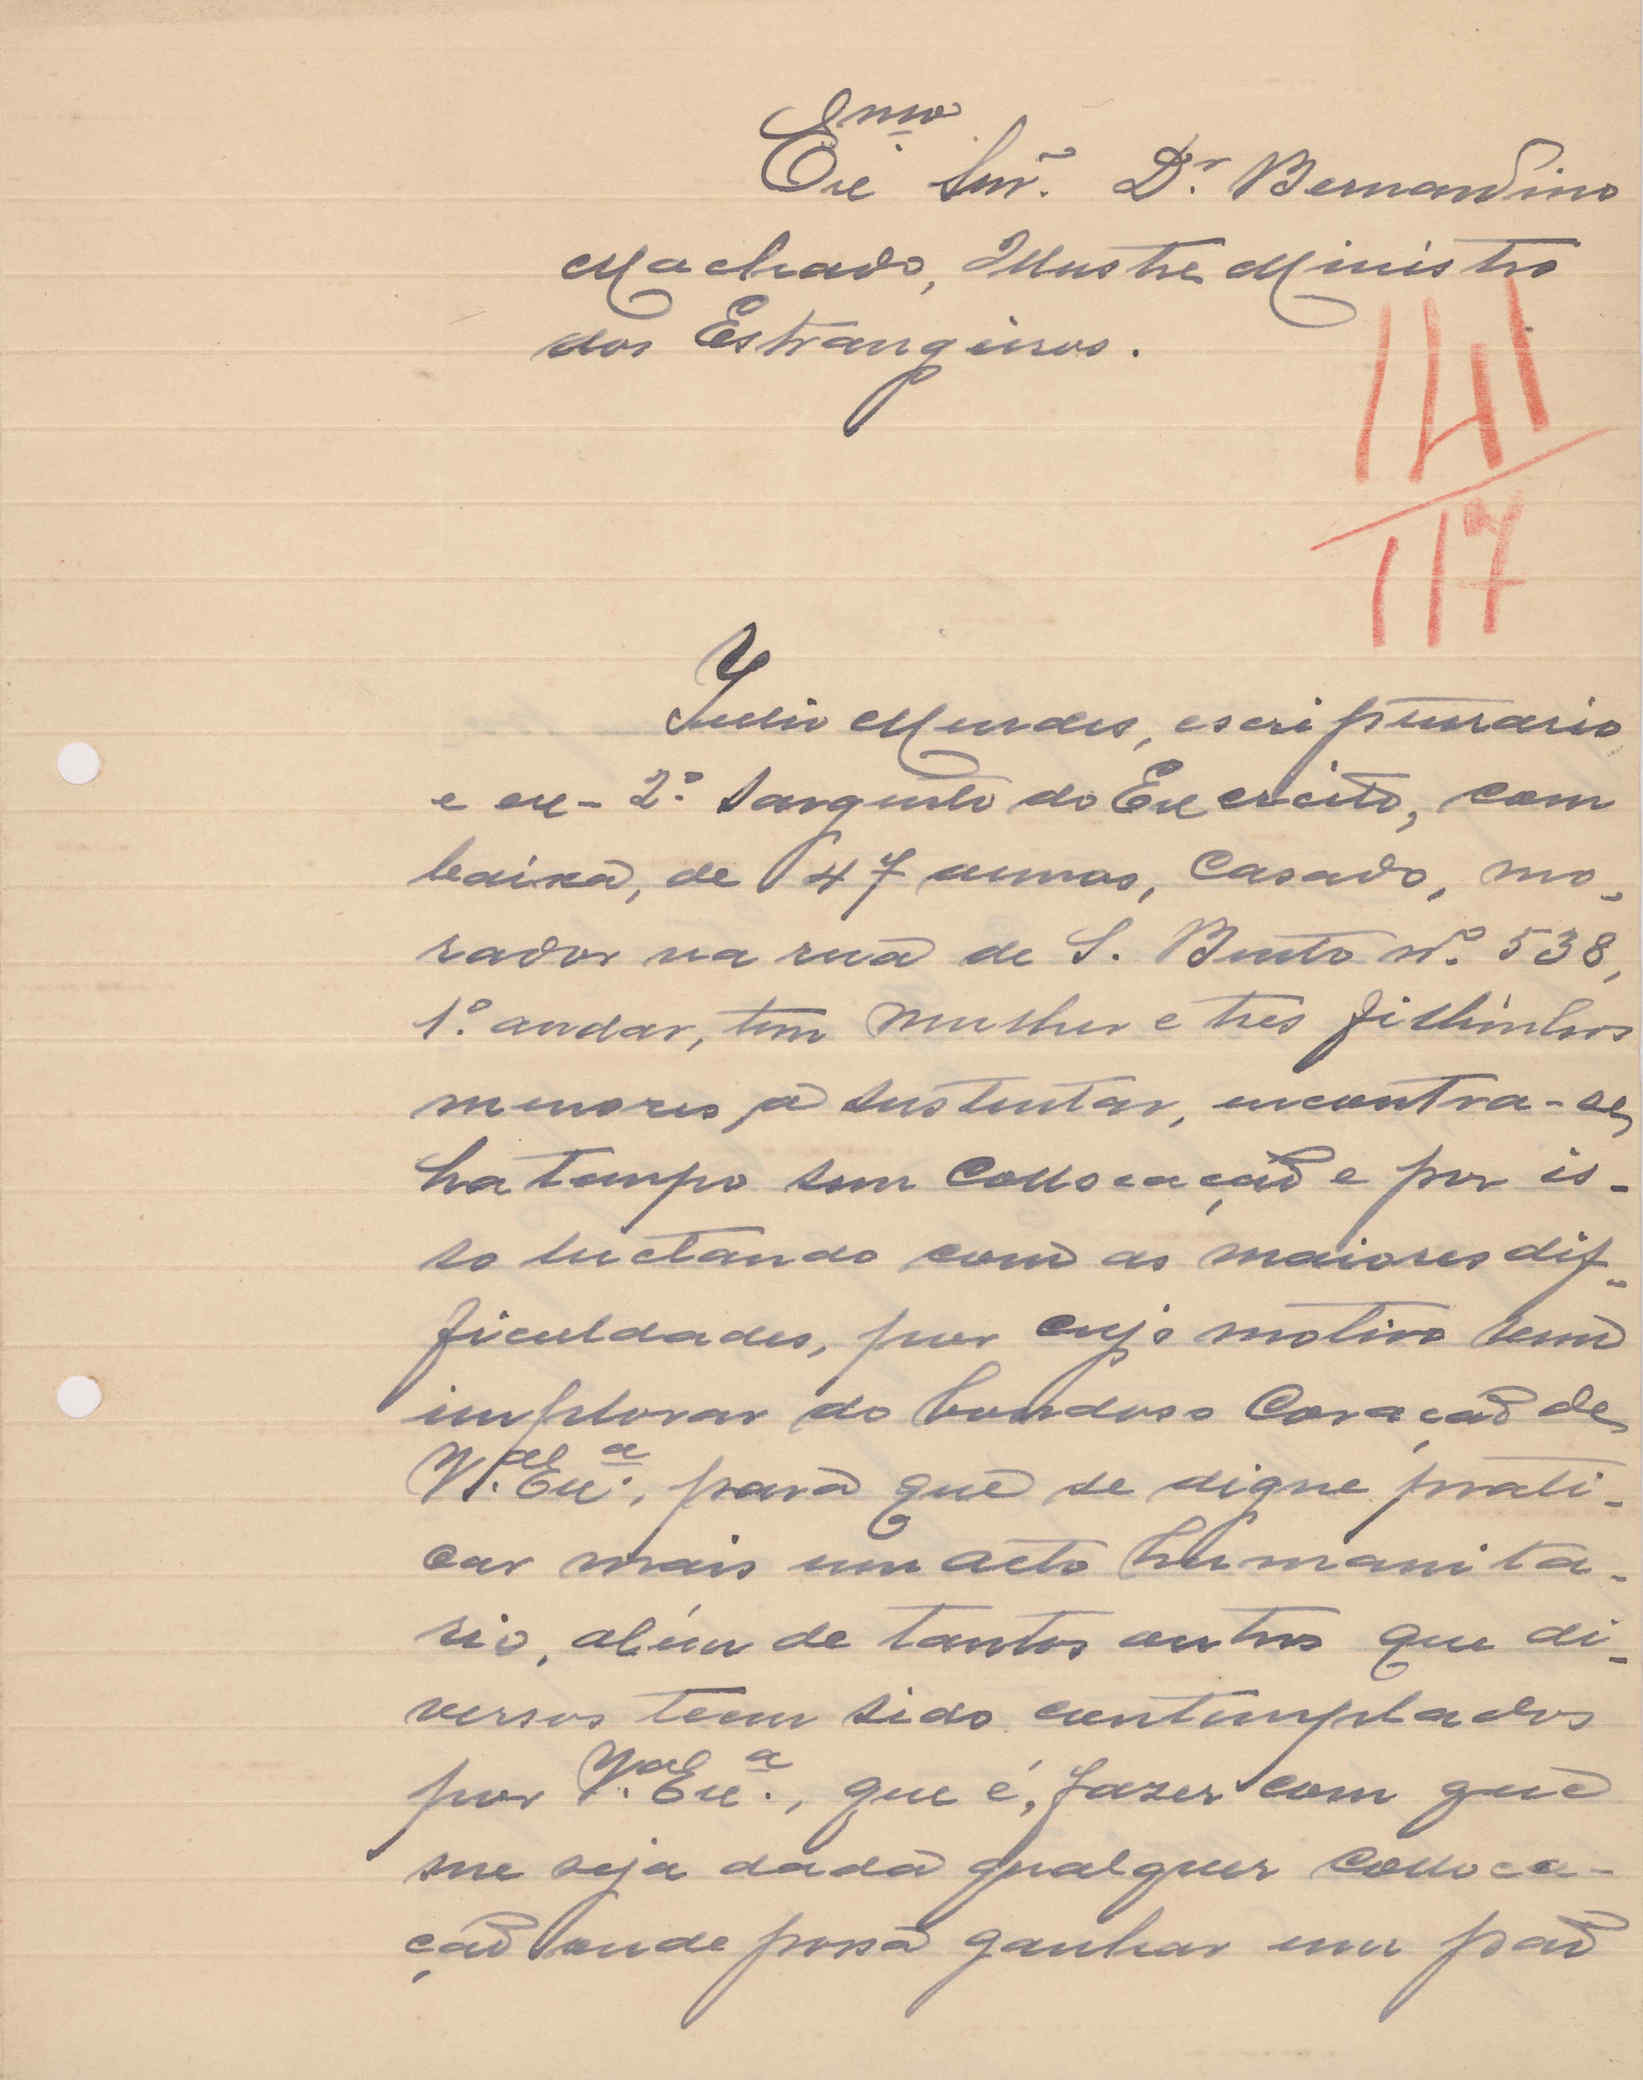 Exᵐᵒ Snr. Dr. Bernardino
Machado, Illustre Ministro
dos Estrangeiros.
141
117
Julio Mendes, escripturario
e ex-2º Sargento do Exercito, com
baixa, de 47 annos, casado, mo-
rador na rua de S. Bento nº 538,
1º andar, tem mulher e tres filhinhos
menores, a sustentar, encontra-se
ha tempo sem collocação e por is-
so luctando com as maiores dif-
ficuldades, por cujo motivo vem
implorar do bondoso coração de
V. Exª, para que se digne prati-
car mais um acto humanita-
rio, além de tantos outros que di-
versos teem sido contemplados
por V. Exª, que é, fazer com que
me seja dada qualquer colloca-
ção onde possa ganhar um pão